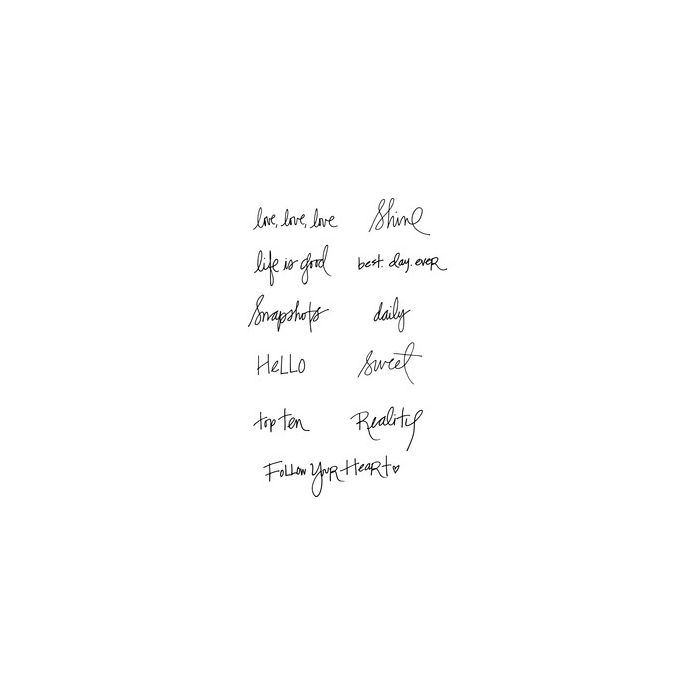 love, love, love
Shine
life is good
best. day. ever
Snapshots
daily
HeLLO
sweet
top ten
Reality
Follow Your Heart♡